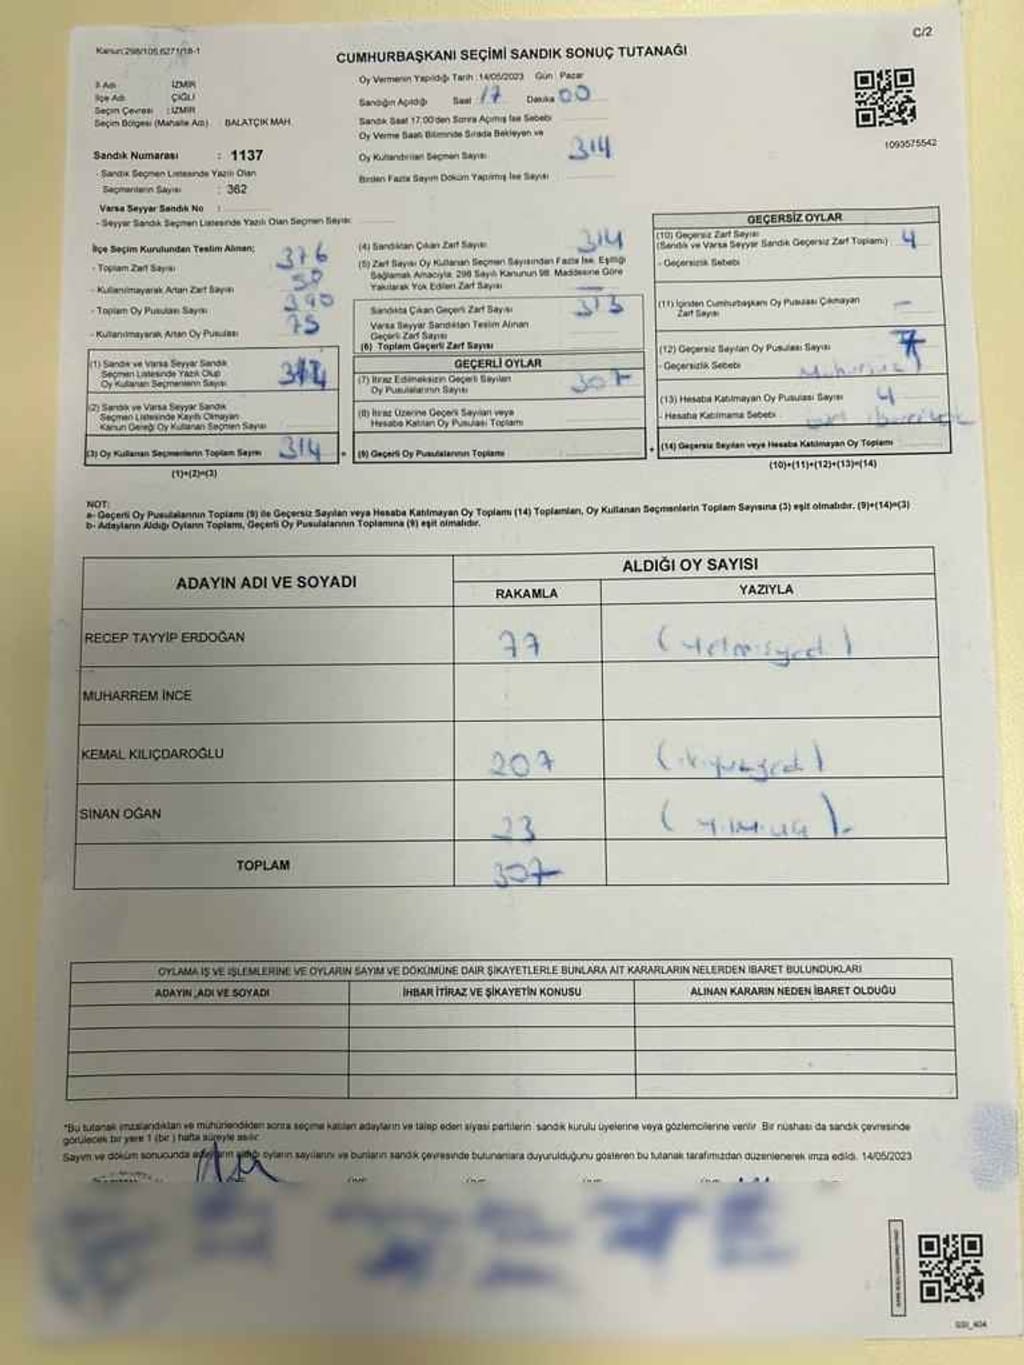 C/2
Kanun:298/105,6271/18-1
CUMHURBAŞKANI SEÇİMİ SANDIK SONUÇ TUTANAĞI
İl Adı İZMİR
İlçe Adı ÇİĞLİ
Seçim Çevresi : İZMİR
Seçim Bölgesi (Mahalle Adı) : BALATÇIK MAH.
Sandık Numarası : 1137
- Sandık Seçmen Listesinde Yazılı Olan
Seçmenlerin Sayısı : 362
Varsa Seyyar Sandık No :
- Seyyar Sandık Seçmen Listesinde Yazılı Olan Seçmen Sayısı:
Oy Vermenin Yapıldığı Tarih :14/05/2023 Gün : Pazar
Sandığın Açıldığı Saat 17 Dakika 00
Sandık Saat 17:00'den Sonra Açılmış İse Sebebi
Oy Verme Saati Bitiminde Sırada Bekleyen ve
Oy Kullandırılan Seçmen Sayısı 314
Birden Fazla Sayım Döküm Yapılmış İse Sayısı
1093575542
İlçe Seçim Kurulundan Teslim Alınan;
- Toplam Zarf Sayısı 376
- Kullanılmayarak Artan Zarf Sayısı
- Toplam Oy Pusulası Sayısı 390
- Kullanılmayarak Artan Oy Pusulası 75
(1) Sandık ve Varsa Seyyar Sandık
Seçmen Listesinde Yazılı Olup
Oy Kullanan Seçmenlerin Sayısı 314
(2) Sandık ve Varsa Seyyar Sandık
Seçmen Listesinde Kayıtlı Olmayan
Kanun Gereği Oy Kullanan Seçmen Sayısı
(3) Oy Kullanan Seçmenlerin Toplam Sayısı 314
(1)+(2)=(3)
(4) Sandıktan Çıkan Zarf Sayısı 314
(5) Zarf Sayısı Oy Kullanan Seçmen Sayısından Fazla İse, Eşitliği
Sağlamak Amacıyla, 298 Sayılı Kanunun 98. Maddesine Göre
Yakılarak Yok Edilen Zarf Sayısı —
Sandıkta Çıkan Geçerli Zarf Sayısı 313
Varsa Seyyar Sandıktan Teslim Alınan
Geçerli Zarf Sayısı
(6) Toplam Geçerli Zarf Sayısı
GEÇERLİ OYLAR
(7) İtiraz Edilmeksizin Geçerli Sayılan
Oy Pusulalarının Sayısı 307
(8) İtiraz Üzerine Geçerli Sayılan veya
Hesaba Katılan Oy Pusulası Toplamı
= (9) Geçerli Oy Pusulalarının Toplamı
GEÇERSİZ OYLAR
(10) Geçersiz Zarf Sayısı
(Sandık ve Varsa Seyyar Sandık Geçersiz Zarf Toplamı) 4
- Geçersizlik Sebebi
(11) İçinden Cumhurbaşkanı Oy Pusulası Çıkmayan
Zarf Sayısı —
(12) Geçersiz Sayılan Oy Pusulası Sayısı 7
- Geçersizlik Sebebi
(13) Hesaba Katılmayan Oy Pusulası Sayısı 4
- Hesaba Katılmama Sebebi
+ (14) Geçersiz Sayılan veya Hesaba Katılmayan Oy Toplamı
(10)+(11)+(12)+(13)=(14)
NOT:
a- Geçerli Oy Pusulalarının Toplamı (9) ile Geçersiz Sayılan veya Hesaba Katılmayan Oy Toplamı (14) Toplamları, Oy Kullanan Seçmenlerin Toplam Sayısına (3) eşit olmalıdır. (9)+(14)=(3)
b- Adayların Aldığı Oyların Toplamı, Geçerli Oy Pusulalarının Toplamına (9) eşit olmalıdır.
ADAYIN ADI VE SOYADI
ALDIĞI OY SAYISI
RAKAMLA YAZIYLA
RECEP TAYYİP ERDOĞAN 77 (yetmişyedi)
MUHARREM İNCE
KEMAL KILIÇDAROĞLU 207 (ikiyüzyedi)
SİNAN OĞAN 23 (yirmiüç).
TOPLAM 307
OYLAMA İŞ VE İŞLEMLERİNE VE OYLARIN SAYIM VE DÖKÜMÜNE DAİR ŞİKAYETLERLE BUNLARA AİT KARARLARIN NELERDEN İBARET BULUNDUKLARI
ADAYIN ADI VE SOYADI İHBAR İTİRAZ VE ŞİKAYETİN KONUSU ALINAN KARARIN NEDEN İBARET OLDUĞU
*Bu tutanak imzalandıktan ve mühürlendikten sonra seçime katılan adayların ve talep eden siyasi partilerin sandık kurulu üyelerine veya gözlemcilerine verilir. Bir nüshası da sandık çevresinde
görülecek bir yere 1 (bir) hafta süreyle asılır.
Sayım ve döküm sonucunda adayların aldığı oyların sayılarını ve bunların sandık çevresinde bulunanlara duyurulduğunu gösteren bu tutanak tarafımızdan düzenlenerek imza edildi. 14/05/2023